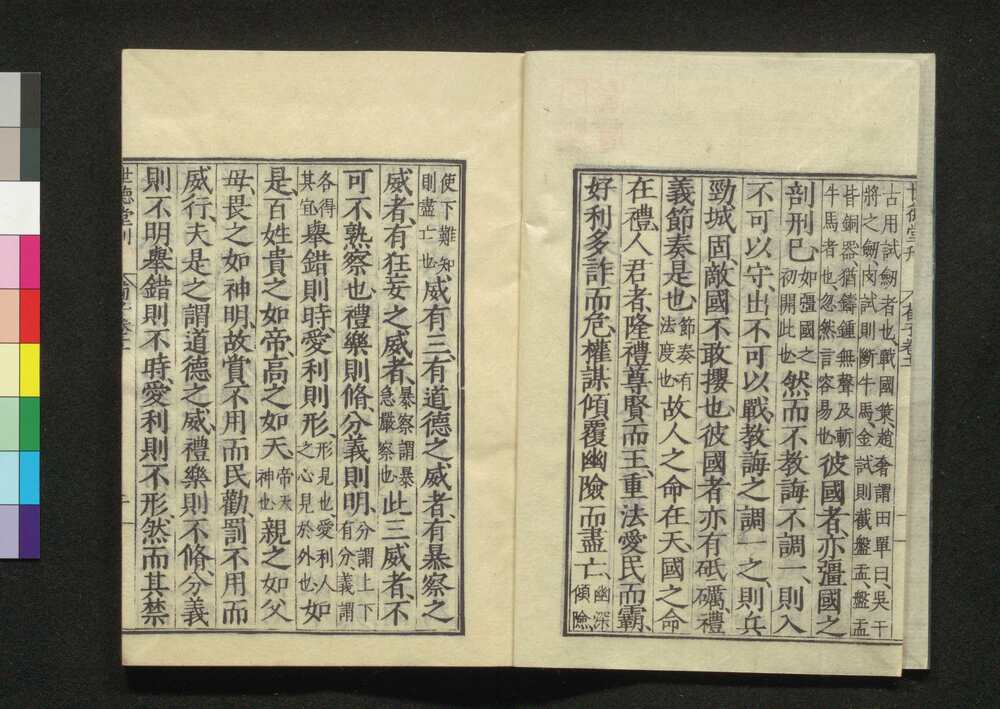 古用試劒者也戰國策趙奢謂田單曰吳干
將之劒肉試則斷牛馬金試則截盤盂盤盂
皆銅器猶鑄鍾無聲及斬
牛馬者也忽然言容易也
彼國者亦彊國之
剖刑已
如彊國之
初開此也
然而不教誨不調一則入
不可以守出不可以戰教誨之調一之則兵
勁城固敵國不敢攖也彼國者亦有砥礪禮
義節奏是也
節奏有
法度也
故人之命在天國之命
在禮人君者隆禮尊賢而王重法愛民而霸
好利多詐而危權謀傾覆幽險而盡亡
幽深
傾險
使下難知
則盡亡也
威有三有道德之威者有暴察之
威者有狂妄之威者
暴察謂暴
急嚴察也
此三威者不
可不熟察也禮樂則脩分義則明
分謂上下
有分義謂
各得
其宜
舉錯則時愛利則形
形見也愛利人
之心見於外也
如
是百姓貴之如帝高之如天
帝天
神也
親之如父
母畏之如神明故賞不用而民勸罰不用而
威行夫是之謂道德之威禮樂則不脩分義
則不明舉錯則不時愛利則不形然而其禁
世德堂刊